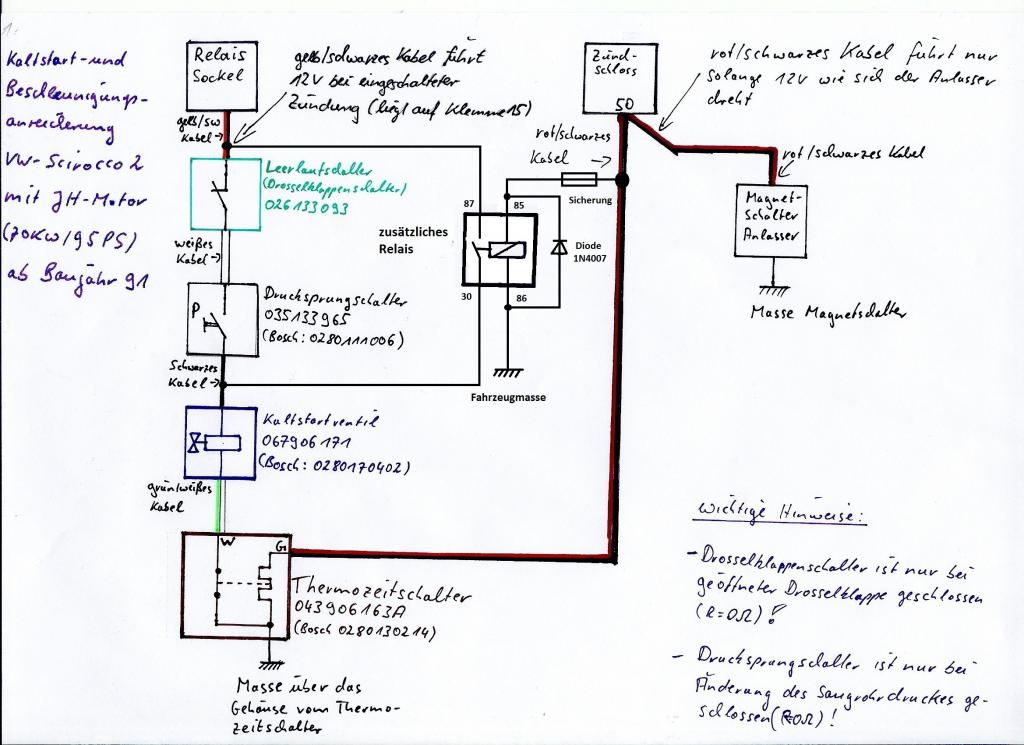 1.
Kaltstart- und
Beschleunigungs-
anreicherung
VW-Scirocco 2
mit JH-Motor
(70KW/95PS)
ab Baujahr 91
Relais
Sockel
gelb/schwarzes Kabel führt
12V bei eingeschalteter
Zündung (liegt auf Klemme 15)
gelb/sw
Kabel
Leerlaufschalter
(Drosselklappenschalter)
026133093
weißes
Kabel
P
Drucksprungschalter
035133965
(Bosch: 0280111006)
Schwarzes
Kabel
Kaltstartventil
067906171
(Bosch: 0280170402)
grün/weißes
Kabel
W
G
Thermozeitschalter
043906163A
(Bosch 0280130214)
Masse über das
Gehäuse vom Thermo-
zeitschalter
zusätzliches
Relais
87
85
30
86
Diode
1N4007
Fahrzeugmasse
Sicherung
rot/schwarzes
Kabel
Zünd-
schloss
50
rot/schwarzes Kabel führt nur
solange 12V wie sich der Anlasser
dreht
rot/schwarzes Kabel
Magnet-
Schalter
Anlasser
Masse Magnetschalter
wichtige Hinweise:
- Drosselklappenschalter ist nur bei
geöffneter Drosselklappe geschlossen
(R=0Ω)!
- Drucksprungschalter ist nur bei
Änderung des Saugrohrdruckes ge-
schlossen (R=0Ω)!